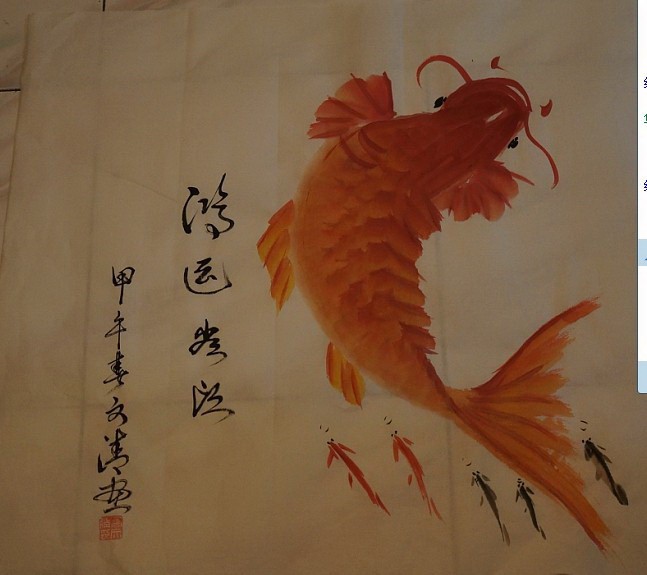 鸿运当头
甲午春文清画